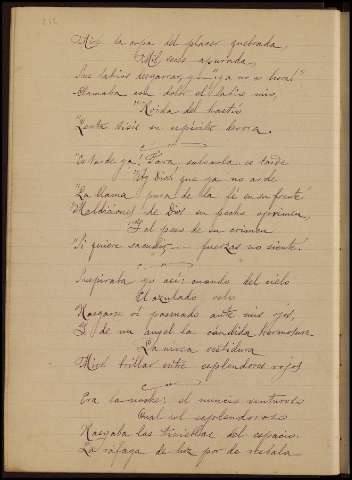 212
Miré la copa del placer quebrada,
Mil seres apurada,
Sus labios desgarrar, y—"¡ya no es hora!"
Clamaba con dolor el labio mio,
"Herida del hastío
"Lenta tisis su espíritu devora.
"Es tarde ya! Para salvarla es tarde
"Ay Dios! que ya no arde
"La llama pura de la fé en su frente!
"Maldiciones de Dios su pecho oprimen,
Y al peso de su crimen
"Si quiere sacudir, — fuerzas no siente!
Suspiraba yo así: cuando del cielo
El azulado velo
Rasgarse ví pasmado ante mis ojos,
Y de un angel la cándida hermosura
La nívea vestidura
Miré brillar entre esplendores rojos
Era la noche: el nuncio venturoso
Cual sol esplendoroso
Rasgaba las tinieblas del espacio:
La ráfaga de luz por do resbala